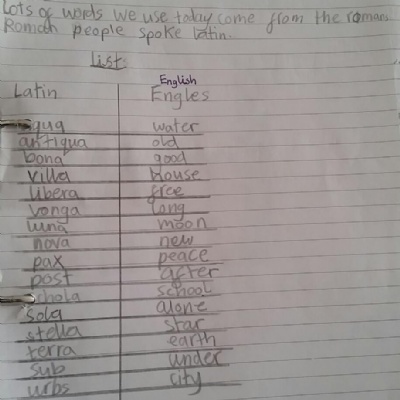 Lots of words we use today come from the romans.
Roman people spoke latin.
List:
English
Latin Engles
aqua water
antiqua old
bona good
villa house
libera free
longa long
luna moon
nova new
pax peace
post after
schola school
sola alone
stella star
terra earth
sub under
urbs city